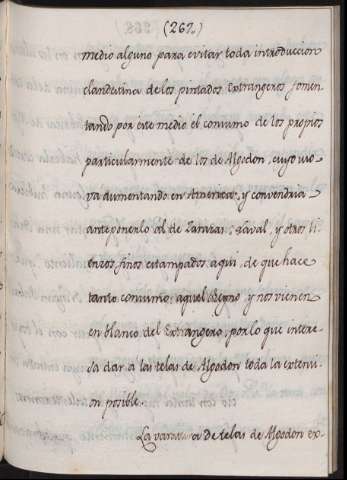 (262)
medio alguno para evitar toda introduccion
clandestina de los pintados Extrangeros fomen-
tando por este medio el consumo de los propios
particularmente de los de Algodon, cuyo uso
va aumentando en Americas, y convendria
anteponerlo al de Zarazas, y otros li-
enzos finos estampados aqui, de que hace
tanto consumo aquel Reyno, y nos vienen
en blanco del Extrangero, por lo que intere-
sa dar a las telas de Algodon toda la extensi-
on posible.
La varatura de telas de Algodon ex-